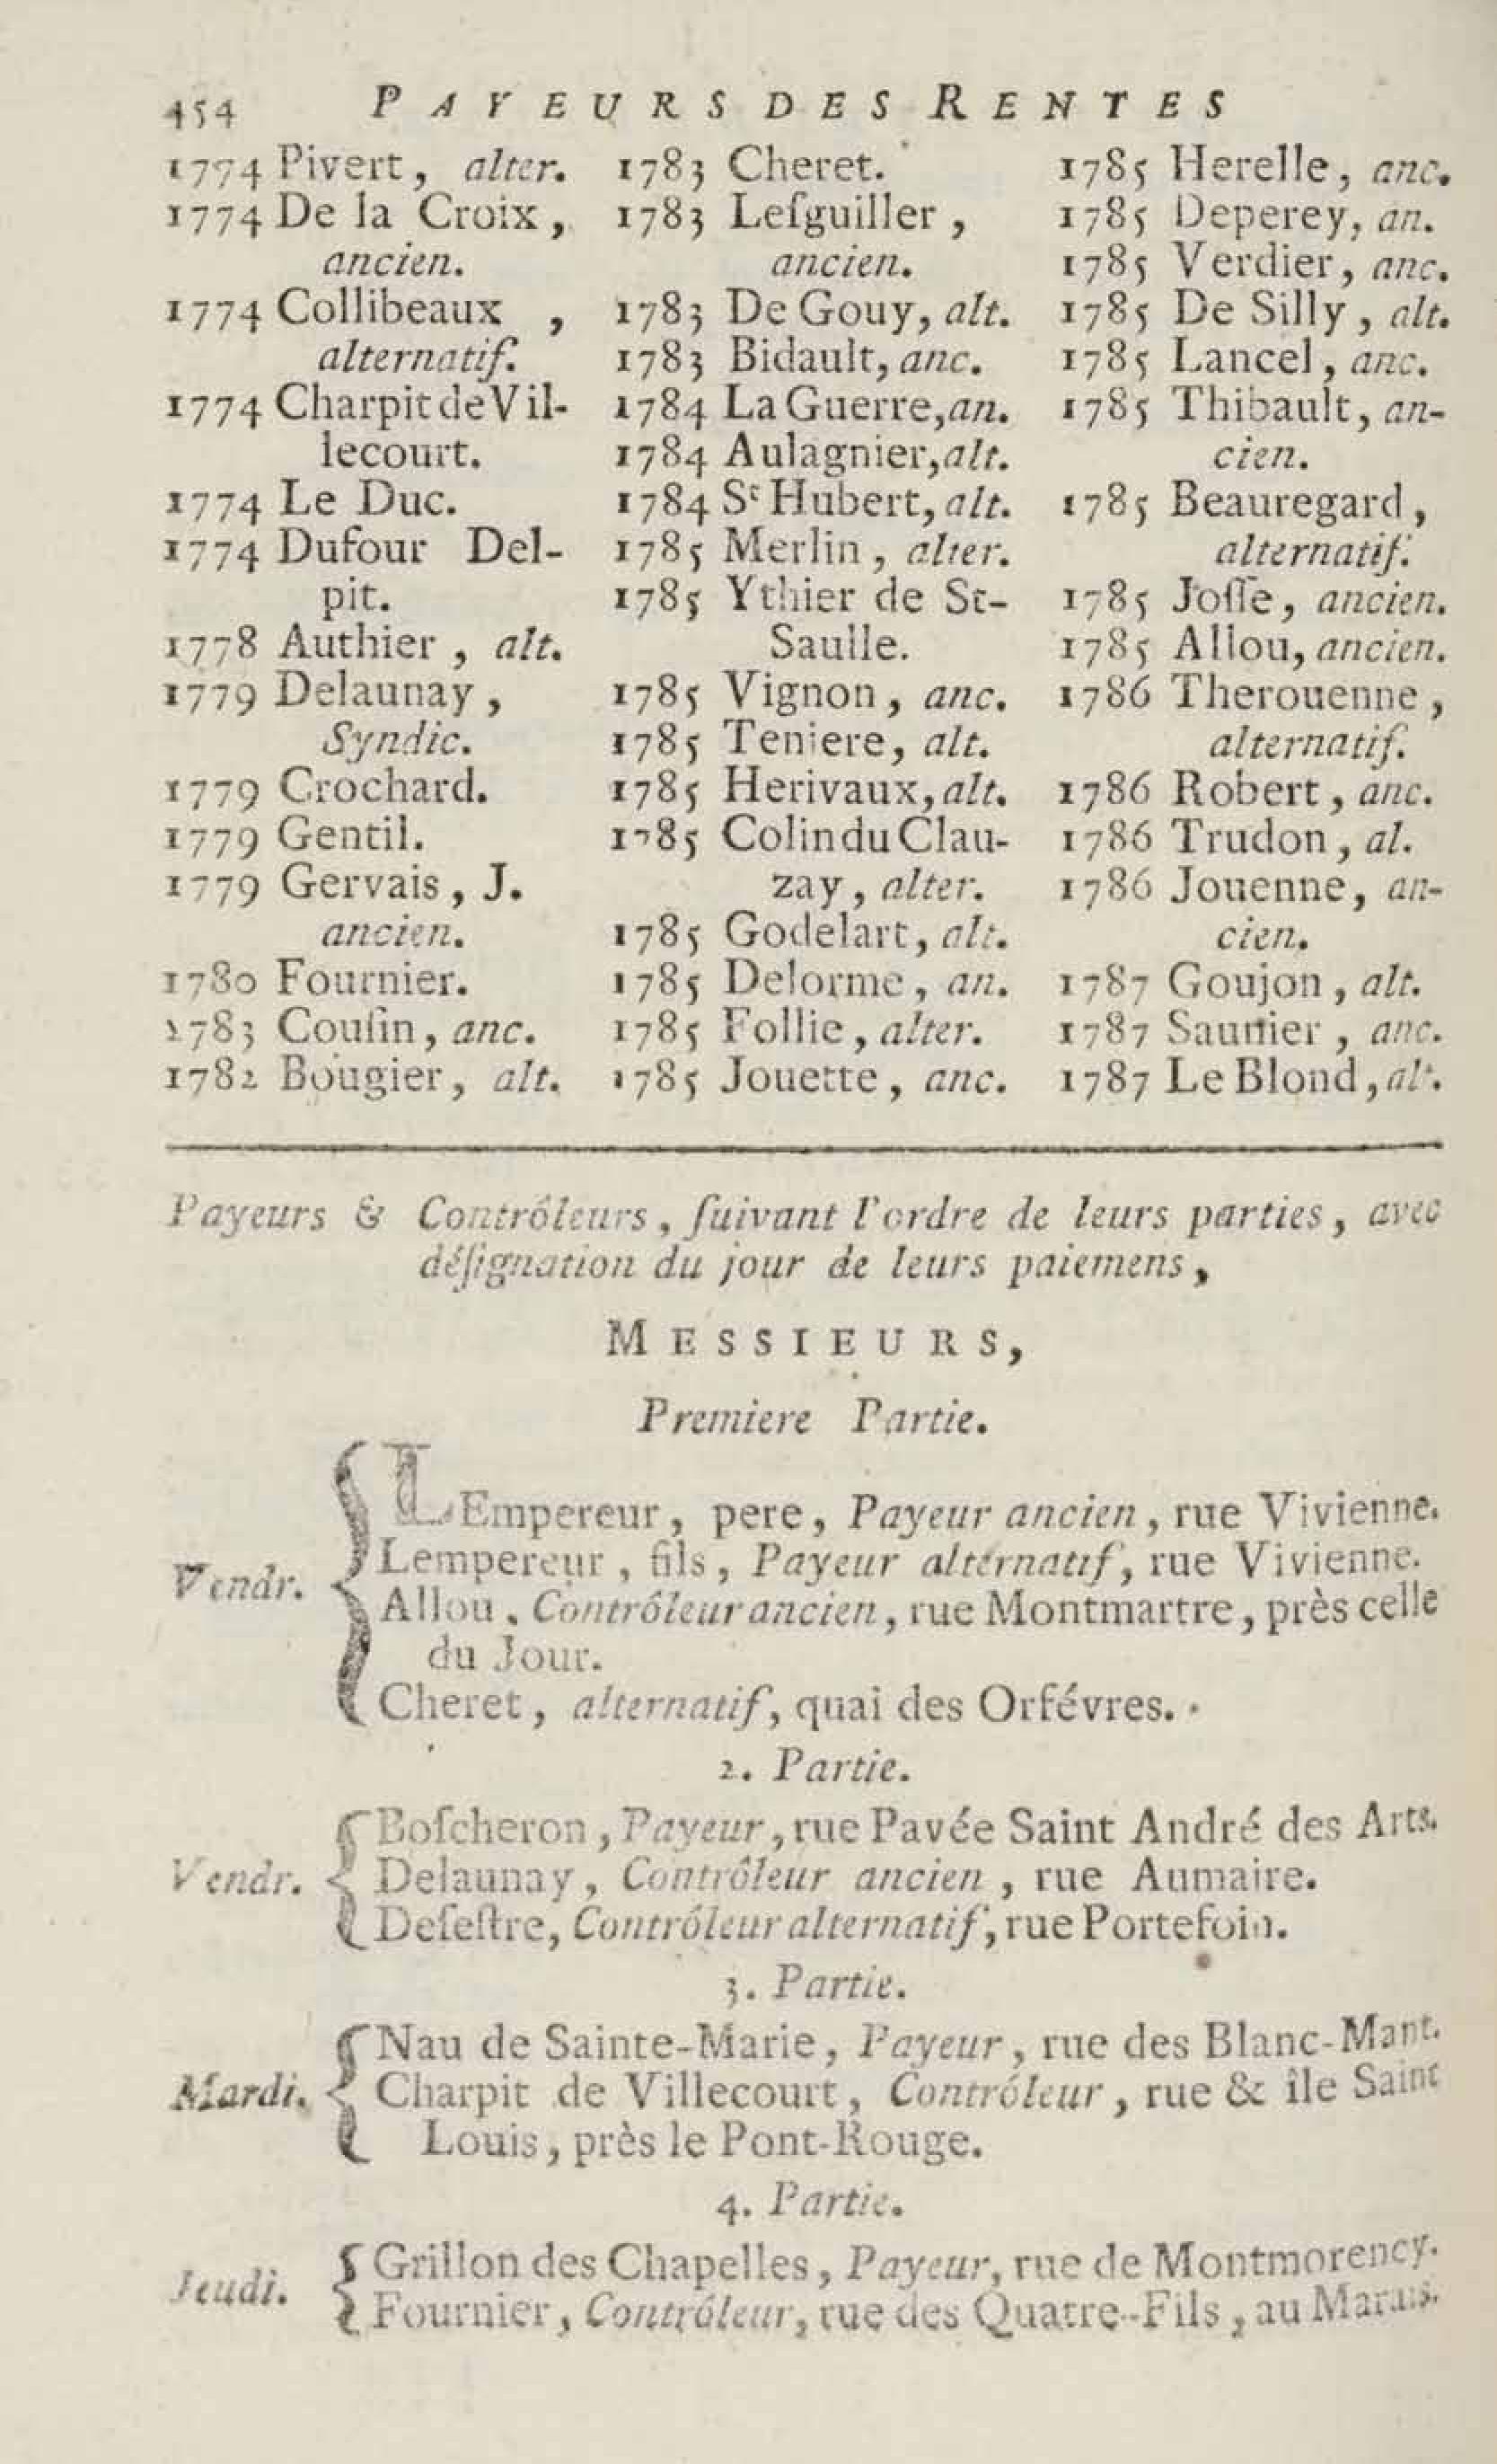 454 PAYEURS DES RENTES
1774 Pivert, alter.
1774 De la Croix,
ancien.
1774 Collibeaux ,
alternatif.
1774 Charpit de Vil-
lecourt.
1774 Le Duc.
1774 Dufour Del-
pit.
1778 Authier , alt.
1779 Delaunay ,
Syndic.
1779 Crochard.
1779 Gentil.
1779 Gervais , J.
ancien.
1780 Fournier.
1783 Couſin, anc.
1782 Bougier, alt.
1783 Cheret.
1783 Leſguiller ,
ancien.
1783 De Gouy, alt.
1783 Bidault, anc.
1784 La Guerre, an.
1784 Aulagnier, alt.
1784 St Hubert, alt.
1785 Merlin , alter.
1785 Ythier de St-
Saulle.
1785 Vignon, anc.
1785 Teniere, alt.
1785 Herivaux, alt.
1785 Colin du Clau-
zay, alter.
1785 Godelart, alt.
1785 Delorme, an.
1785 Follie, alter.
1785 Jouette, anc.
1785 Herelle, anc.
1785 Deperey, an.
1785 Verdier, anc.
1785 De Silly, alt.
1785 Lancel, anc.
1785 Thibault, an-
cien.
1785 Beauregard,
alternatif.
1785 Joſſe, ancien.
1785 Allou, ancien.
1786 Therouenne,
alternatif.
1786 Robert, anc.
1786 Trudon, al.
1786 Jouenne, an-
cien.
1787 Goujon, alt.
1787 Saunier, anc.
1787 Le Blond, alt.
Payeurs & Contrôleurs, ſuivant l'ordre de leurs parties, avec
déſignation du jour de leurs paiemens,
MESSIEURS,
Premiere Partie.
LEmpereur, pere, Payeur ancien, rue Vivienne.
Lempereur, fils, Payeur alternatif, rue Vivienne.
Vendr. Allou, Contrôleur ancien, rue Montmartre, près celle
du Jour.
Cheret, alternatif, quai des Orfévres.
2. Partie.
Boſcheron, Payeur, rue Pavée Saint André des Arts.
Vendr. Delaunay, Contrôleur ancien, rue Aumaire.
Deſeſtre, Contrôleur alternatif, rue Portefoin.
3. Partie.
Nau de Sainte-Marie, Payeur, rue des Blanc-Mant.
Mardi. Charpit de Villecourt, Contrôleur, rue & île Saint
Louis, près le Pont-Rouge.
4. Partie.
Jeudi. Grillon des Chapelles, Payeur, rue de Montmorency.
Fournier, Contrôleur, rue des Quatre-Fils, au Marais.